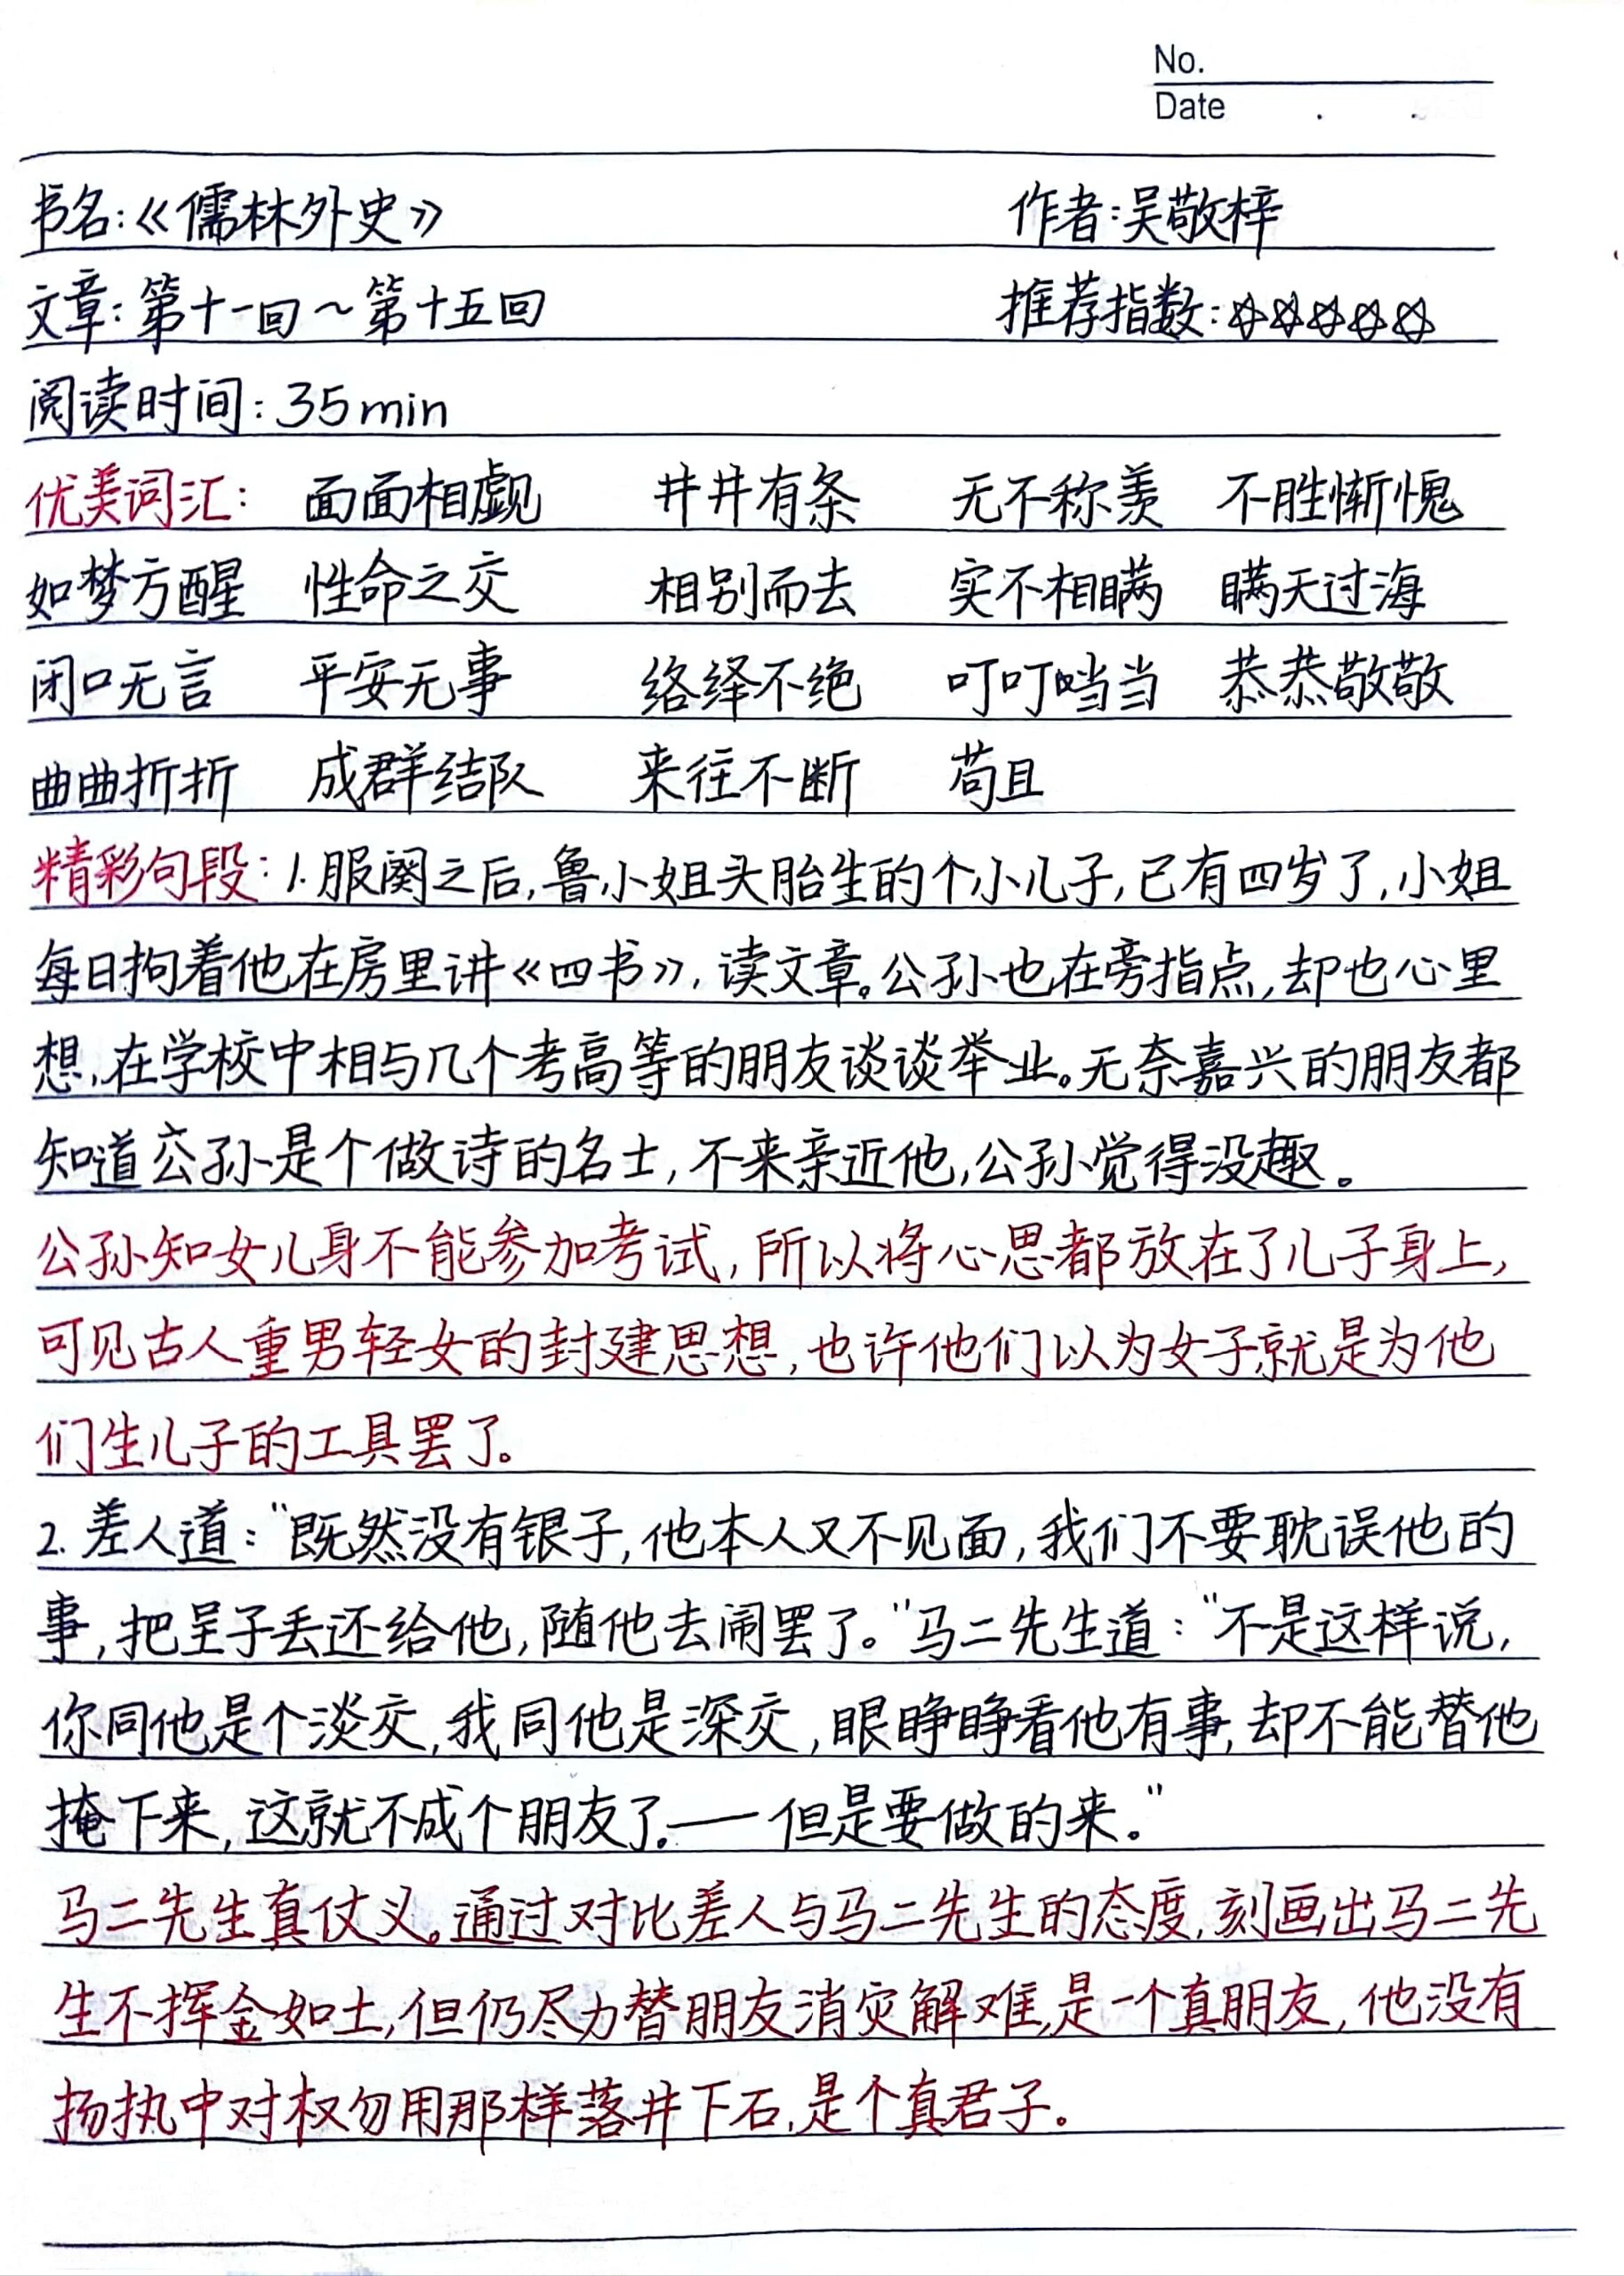 No.
Date
书名:《儒林外史》 作者:吴敬梓
文章:第十一回～第十五回 推荐指数:☆☆☆☆☆
阅读时间:35min
优美词汇: 面面相觑 井井有条 无不称羡 不胜惭愧
如梦方醒 性命之交 相别而去 实不相瞒 瞒天过海
闭口无言 平安无事 络绎不绝 叮叮当当 恭恭敬敬
曲曲折折 成群结队 来往不断 苟且
精彩句段:1.服阕之后,鲁小姐头胎生的个小儿子,已有四岁了,小姐
每日拘着他在房里讲《四书》,读文章。公孙也在旁指点,却也心里
想,在学校中相与几个考高等的朋友谈谈举业。无奈嘉兴的朋友都
知道公孙是个做诗的名士,不来亲近他,公孙觉得没趣。
公孙知女儿身不能参加考试,所以将心思都放在了儿子身上,
可见古人重男轻女的封建思想,也许他们以为女子就是为他
们生儿子的工具罢了。
2.差人道:"既然没有银子,他本人又不见面,我们不要耽误他的
事,把呈子丢还给他,随他去闹罢了。"马二先生道:"不是这样说,
你同他是个淡交,我同他是深交,眼睁睁看他有事,却不能替他
掩下来,这就不成个朋友了。——但是要做的来。"
马二先生真仗义。通过对比差人与马二先生的态度,刻画出马二先
生不挥金如土,但仍尽力替朋友消灾解难,是一个真朋友,他没有
扬执中对权勿用那样落井下石,是个真君子。